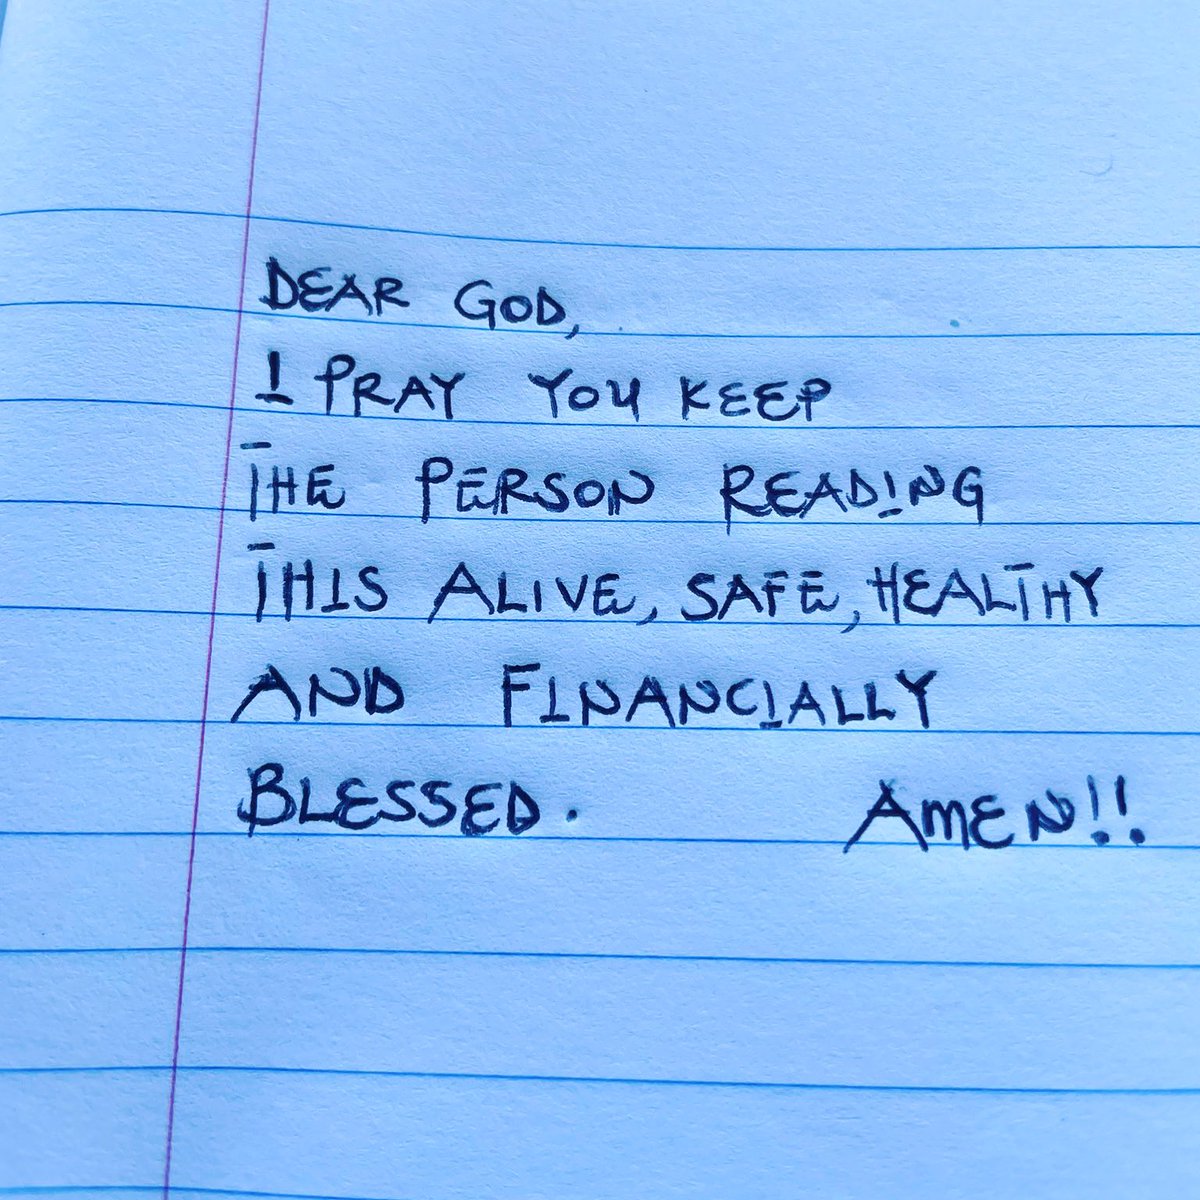 DEAR GOD,
I PRAY YOU KEEP
THE PERSON READING
THIS ALIVE, SAFE, HEALTHY
AND FINANCIALLY
BLESSED. AMEN!!